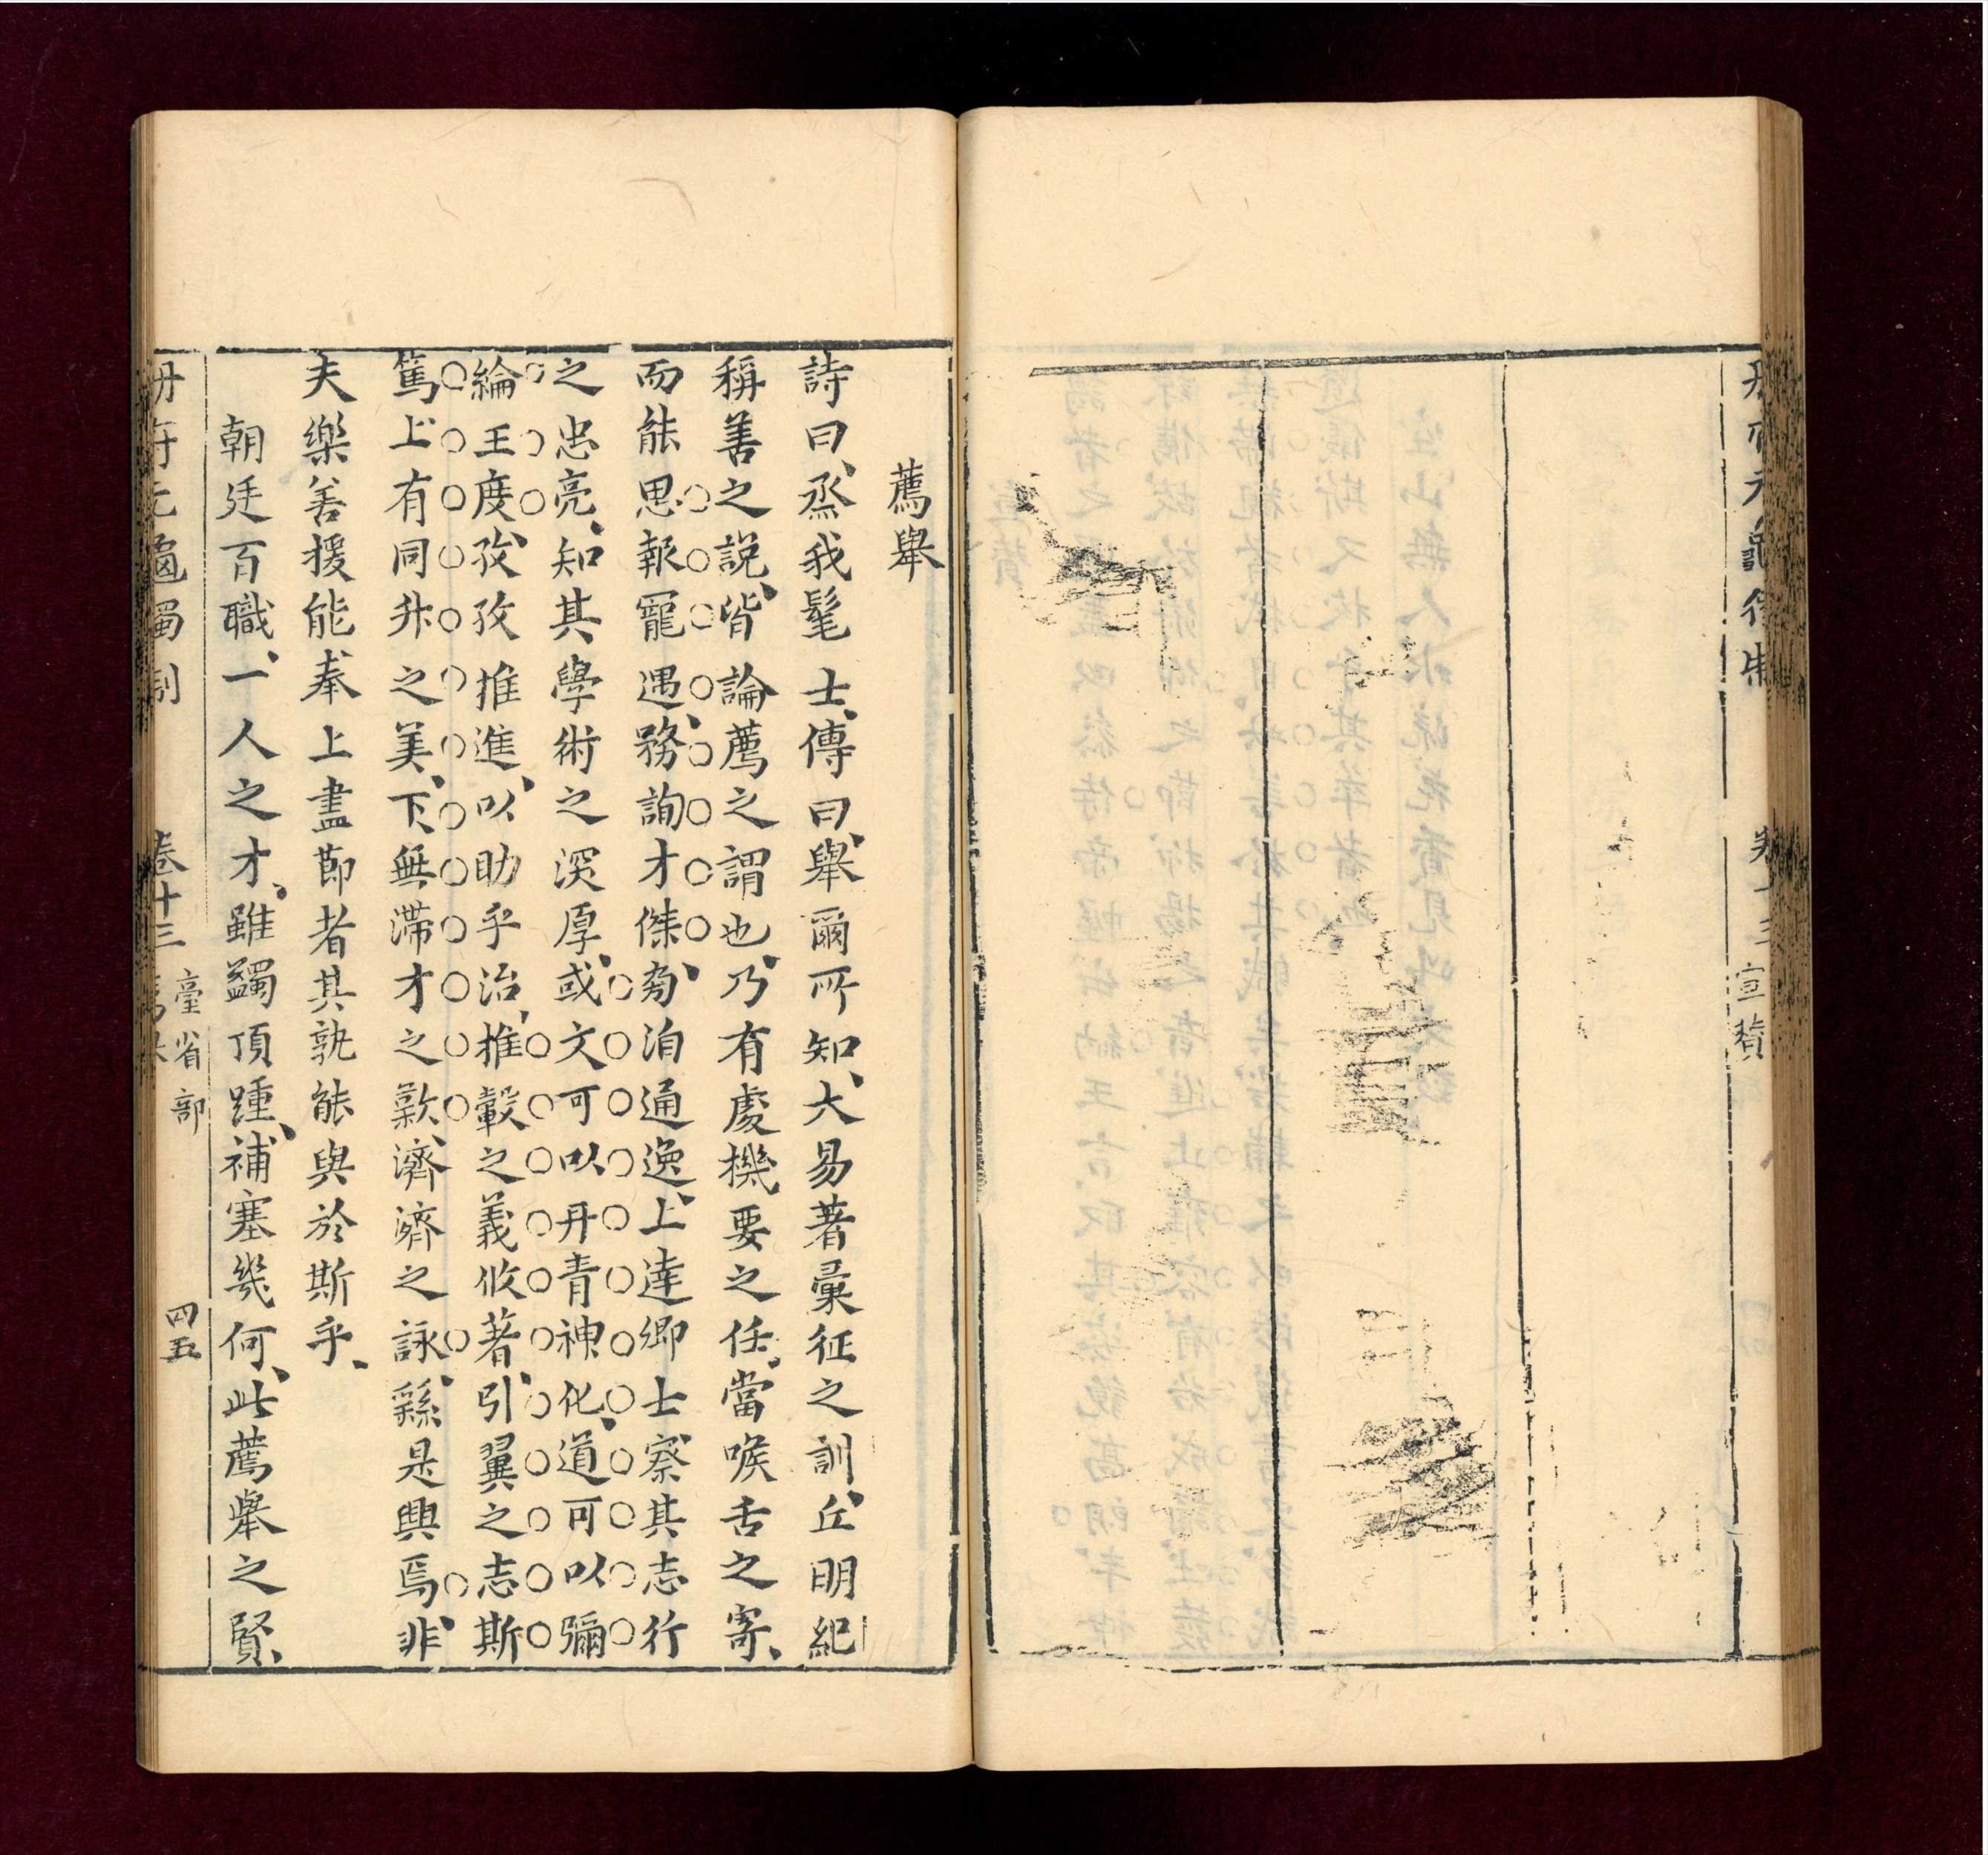 卷十三 宣贊
薦舉
詩曰、烝我髦士、傳曰、舉爾所知、大易著彙征之訓、丘明紀
稱善之說、皆論薦之謂也、乃有處機要之任、當喉舌之寄、
而能思報寵遇、務詢才傑、旁洎通逸、上達卿士察其志行
之忠亮、知其學術之深厚、或文可以丹青神化、道可以彌
綸王度、孜孜推進、以助乎治、推轂之義攸著、引翼之志斯
篤、上有同升之美、下無滯才之歎、濟濟之詠、繇是興焉、非
夫樂善援能奉上盡節者其孰能與於斯乎、
朝廷百職、一人之才、雖蠲頂踵、補塞幾何、此薦舉之賢、
冊府元龜獨制 卷十三 臺省部 四五